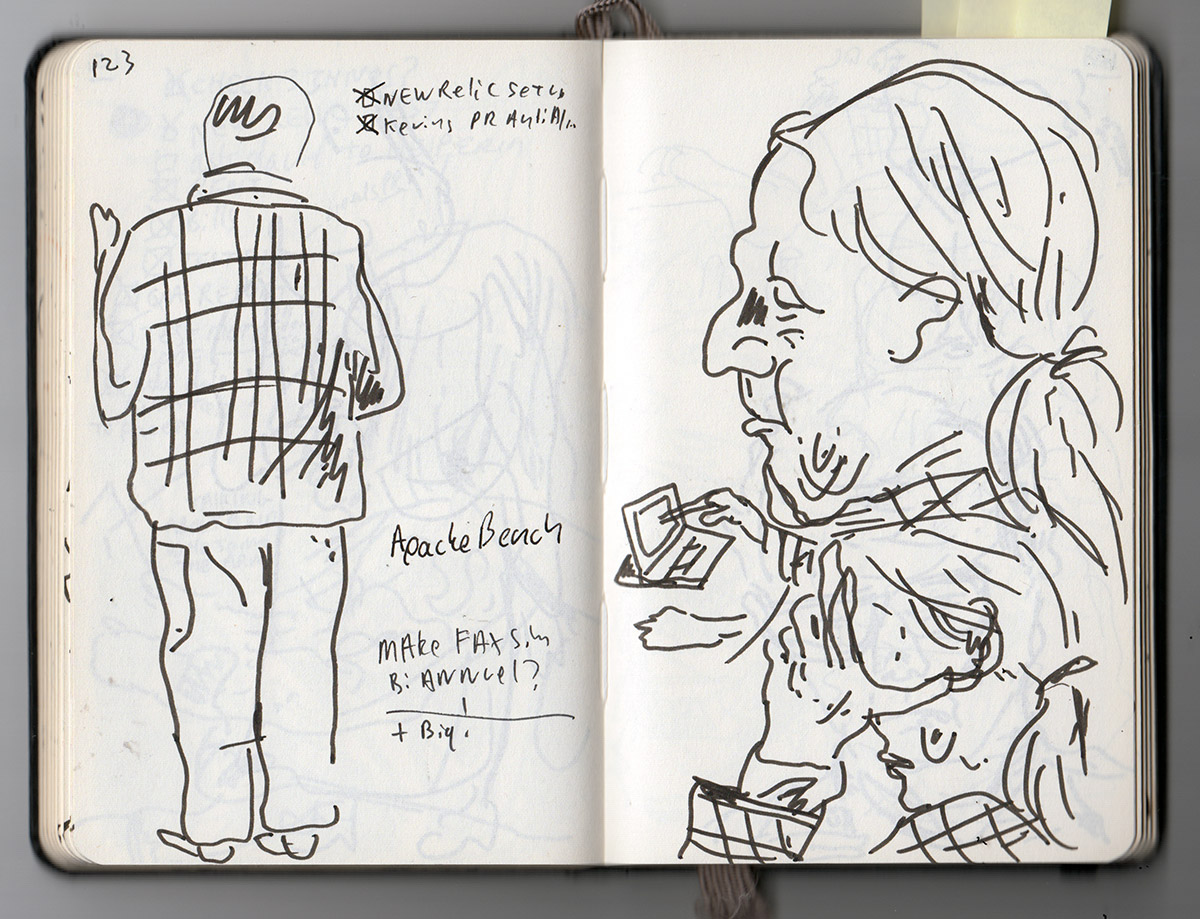 123
NEWRelic SETUP
Kevins PR
ApacheBench
MAKE FAXS.in
Bi ANNuel?
+ Big.